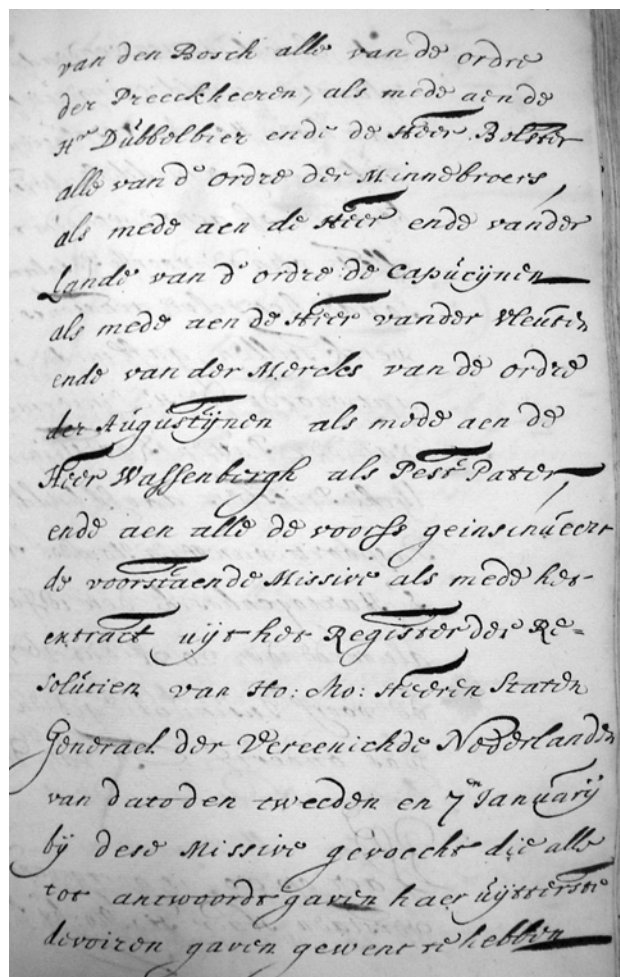 van den Bosch alle van de ordre
der Preeckheeren, als mede aen de
Hr Dubbelbier ende de Heer Bolster
alle van d' ordre der Minnebroers,
als mede aen de Heer ende vander
Lande van d' ordre de Capucijnen
als mede aen de Heer vander Vleuten
ende van der Merckes van de ordre
der Augustijnen als mede aen de
Heer Wassenbergh als Pest Pater,
ende aen alle de voorss geinsinueert
de voorstaende Missive als mede het
extract uijt het Register der Re=
solutien van Ho: Mo: Heeren Staten
Generael der Vereenichde Nederlanden
van dato den tweeden en 7en January
bij dese Missive gevoecht die alle
tot antwoordt gaven haer uijtterste
devoiren gaven gewent te hebben